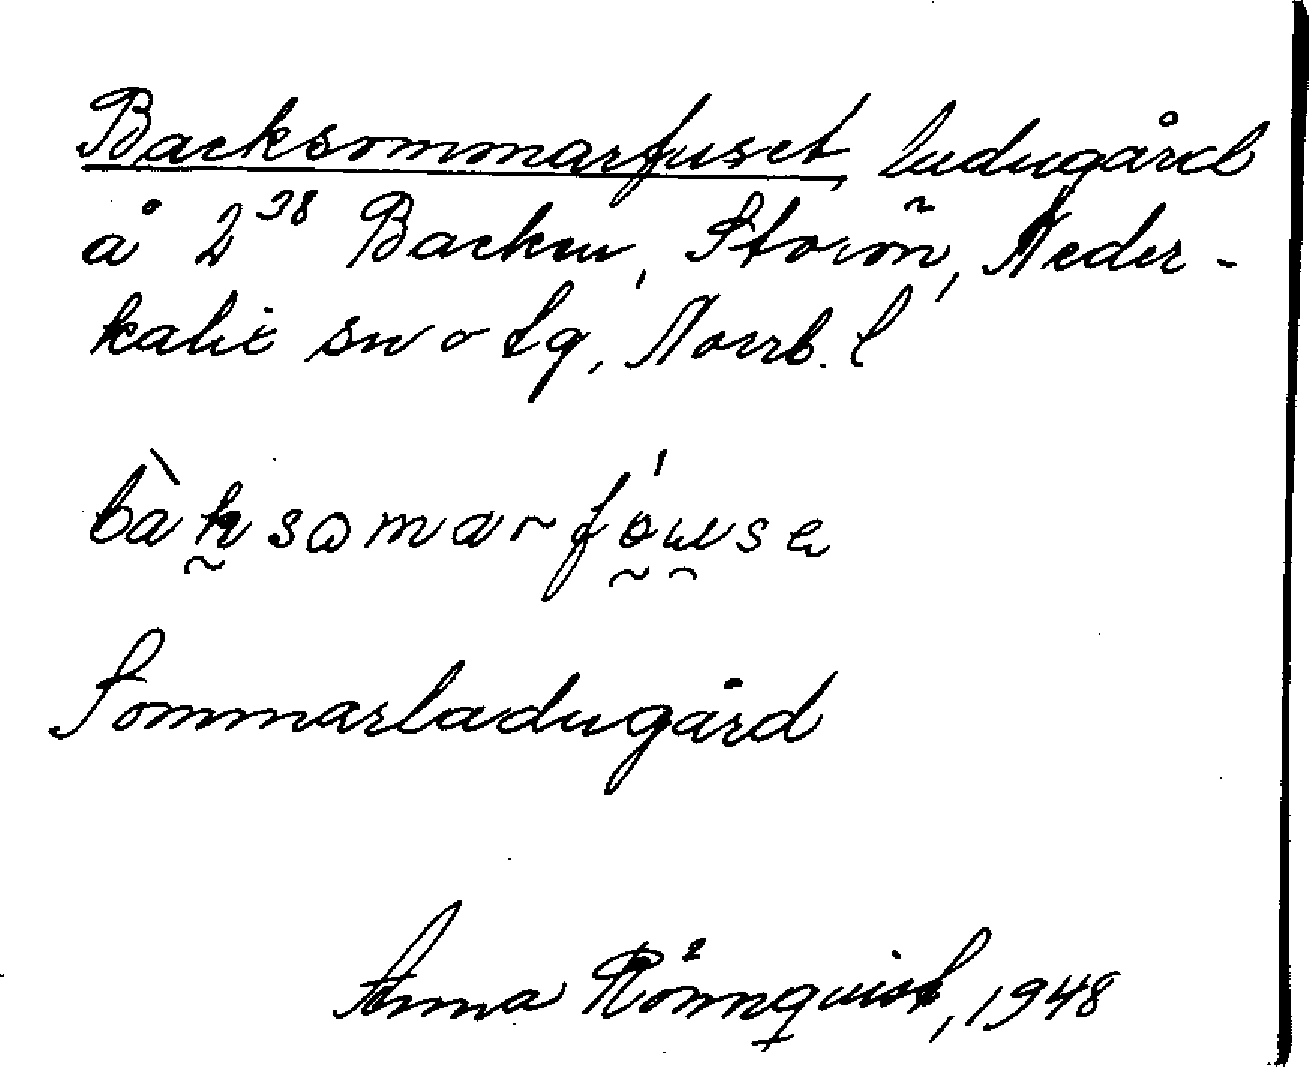 Backsommarfuset, ladugård
å 2³⁸ Backen, Storön, Neder-
kalix sn o tg, Norrb. l
bàksomarfóusɐ
Sommarladugård
Anna Rönnqvist, 1948